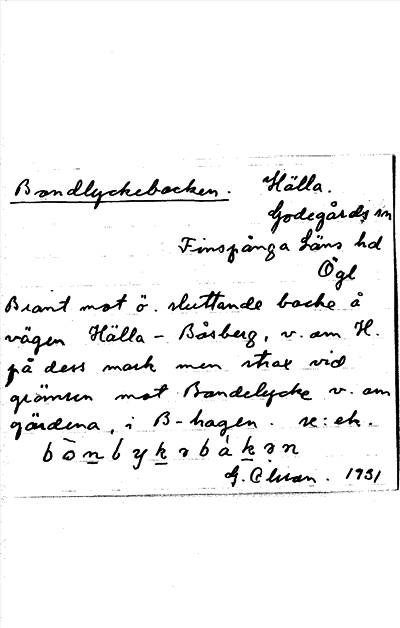 Bondlyckebacken. Hälla.
Godegårds sn
Finspånga läns hd
Ögl
Brant mot ö. sluttande backe å
vägen Hälla - Båsberg, v. om H.
på dess mark men strax vid
gränsen mot Bondelycke v. om
gärdena, i B-hagen. se: ek.
G. Olsson. 1931